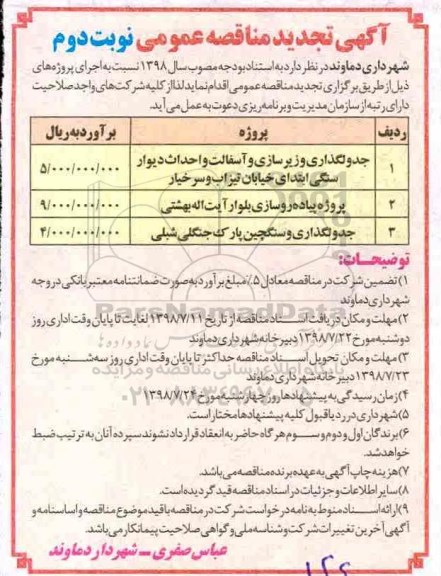 آگهی تجدید مناقصه عمومی نوبت دوم
شهرداری دماوند در نظر دارد به استناد بودجه مصوب سال ۱۳۹۸ نسبت به اجرای پروژه های
ذیل از طریق برگزاری تجدید مناقصه عمومی اقدام نماید لذا از کلیه شرکت های واجد صلاحیت
دارای رتبه از سازمان مدیریت و برنامه ریزی دعوت به عمل می آید.
ردیف پروژه برآورد به ریال
۱ جدولگذاری و زیرسازی و آسفالت و احداث دیوار سنگی ابتدای خیابان تیزاب و سرخیار ۵/۰۰۰/۰۰۰/۰۰۰
۲ پروژه پیاده روسازی بلوار آیت اله بهشتی ۹/۰۰۰/۰۰۰/۰۰۰
۳ جدولگذاری و سنگچین پارک جنگلی شبلی ۴/۰۰۰/۰۰۰/۰۰۰
توضیحات:
۱) تضمین شرکت در مناقصه معادل ۵٪ مبلغ برآورد به صورت ضمانتنامه معتبر بانکی در وجه
شهرداری دماوند
۲) مهلت و مکان دریافت اسناد مناقصه از تاریخ ۱۳۹۸/۷/۱۱ لغایت تا پایان وقت اداری روز
دوشنبه مورخ ۱۳۹۸/۷/۲۲ دبیرخانه شهرداری دماوند
۳) مهلت و مکان تحویل اسناد مناقصه حداکثر تا پایان وقت اداری روز سه شنبه مورخ
۱۳۹۸/۷/۲۳ دبیرخانه شهرداری دماوند
۴) زمان رسیدگی به پیشنهادها روز چهارشنبه مورخ ۱۳۹۸/۷/۲۴
۵) شهرداری در رد یا قبول کلیه پیشنهادها مختار است.
۶) برندگان اول و دوم و سوم هرگاه حاضر به انعقاد قرارداد نشوند سپرده آنان به ترتیب ضبط
خواهد شد.
۷) هزینه چاپ آگهی به عهده برنده مناقصه می باشد.
۸) سایر اطلاعات و جزئیات در اسناد مناقصه قید گردیده است.
۹) ارائه اسناد منوط به نامه درخواست شرکت در مناقصه با قید موضوع مناقصه و اساسنامه و
آگهی آخرین تغییرات شرکت و شناسه ملی و گواهی صلاحیت پیمانکار می باشد.
عباس صفری - شهردار دماوند